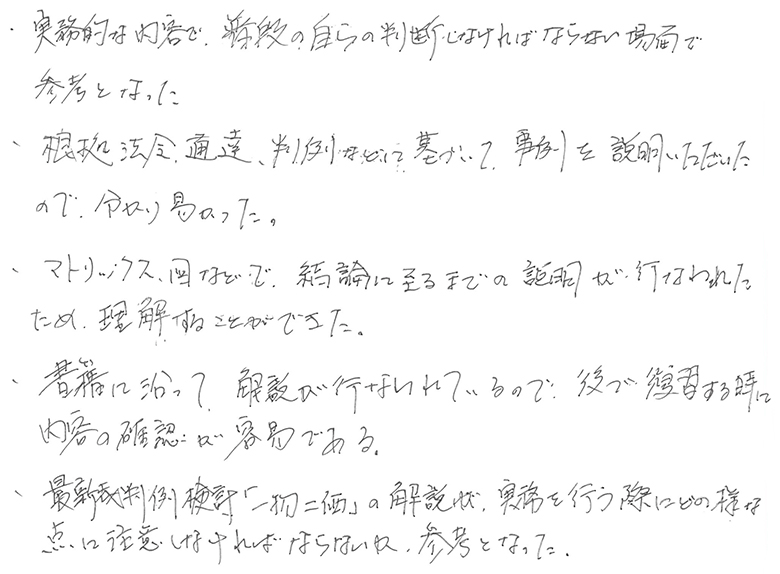 ・実務的な内容で、普段の自らの判断しなければならない場面で
参考となった
、根拠法令、通達、判例などに基づいて、事例を説明いただいた
ので、分かり易かった。
、マトリックス、図などで、結論に至るまでの説明が行なわれた
ため、理解することができた。
、書籍に沿って、解説が行なわれているので、後で復習する時に
内容の確認が容易である。
、最新裁判例検討「一物二価」の解説が、実務を行う際にどの様な
点に注意しなければならないか、参考となった。